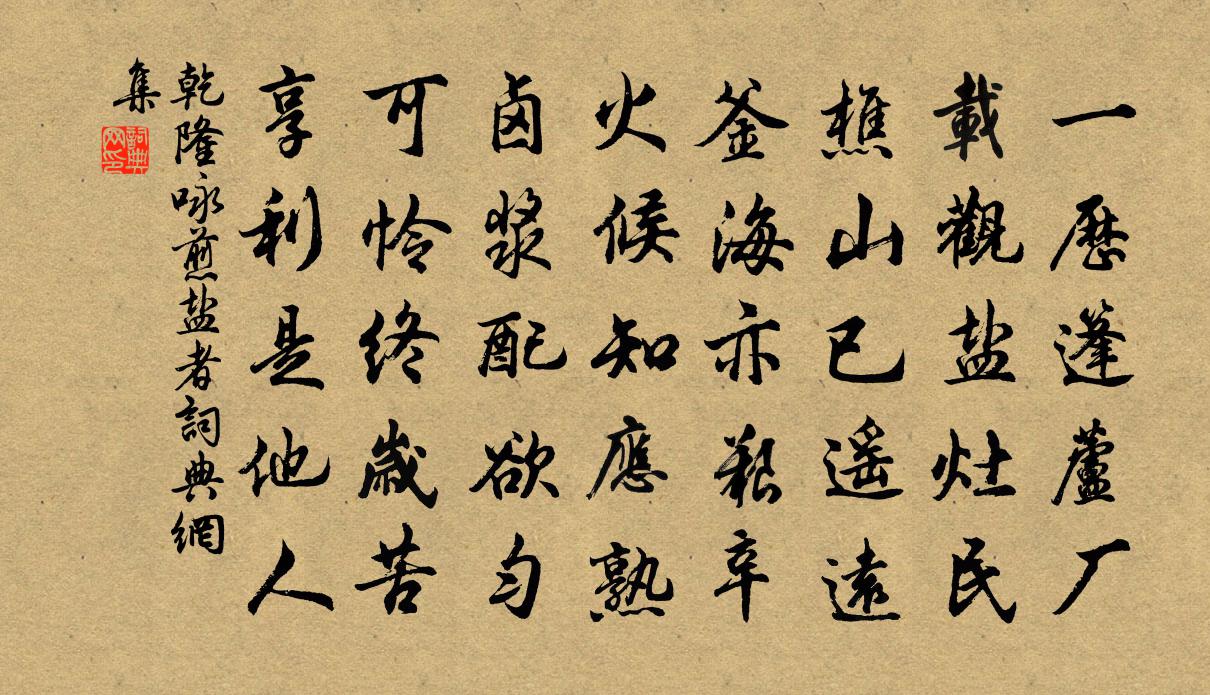 一歷蓬蘆厂
載觀盐灶民
樵山已遥遠
釜海亦艱辛
火候知應熟
卤漿配欲匀
可怜终歲苦
享利是他人
乾隆咏煎盐者詞典網
集
詞典网印